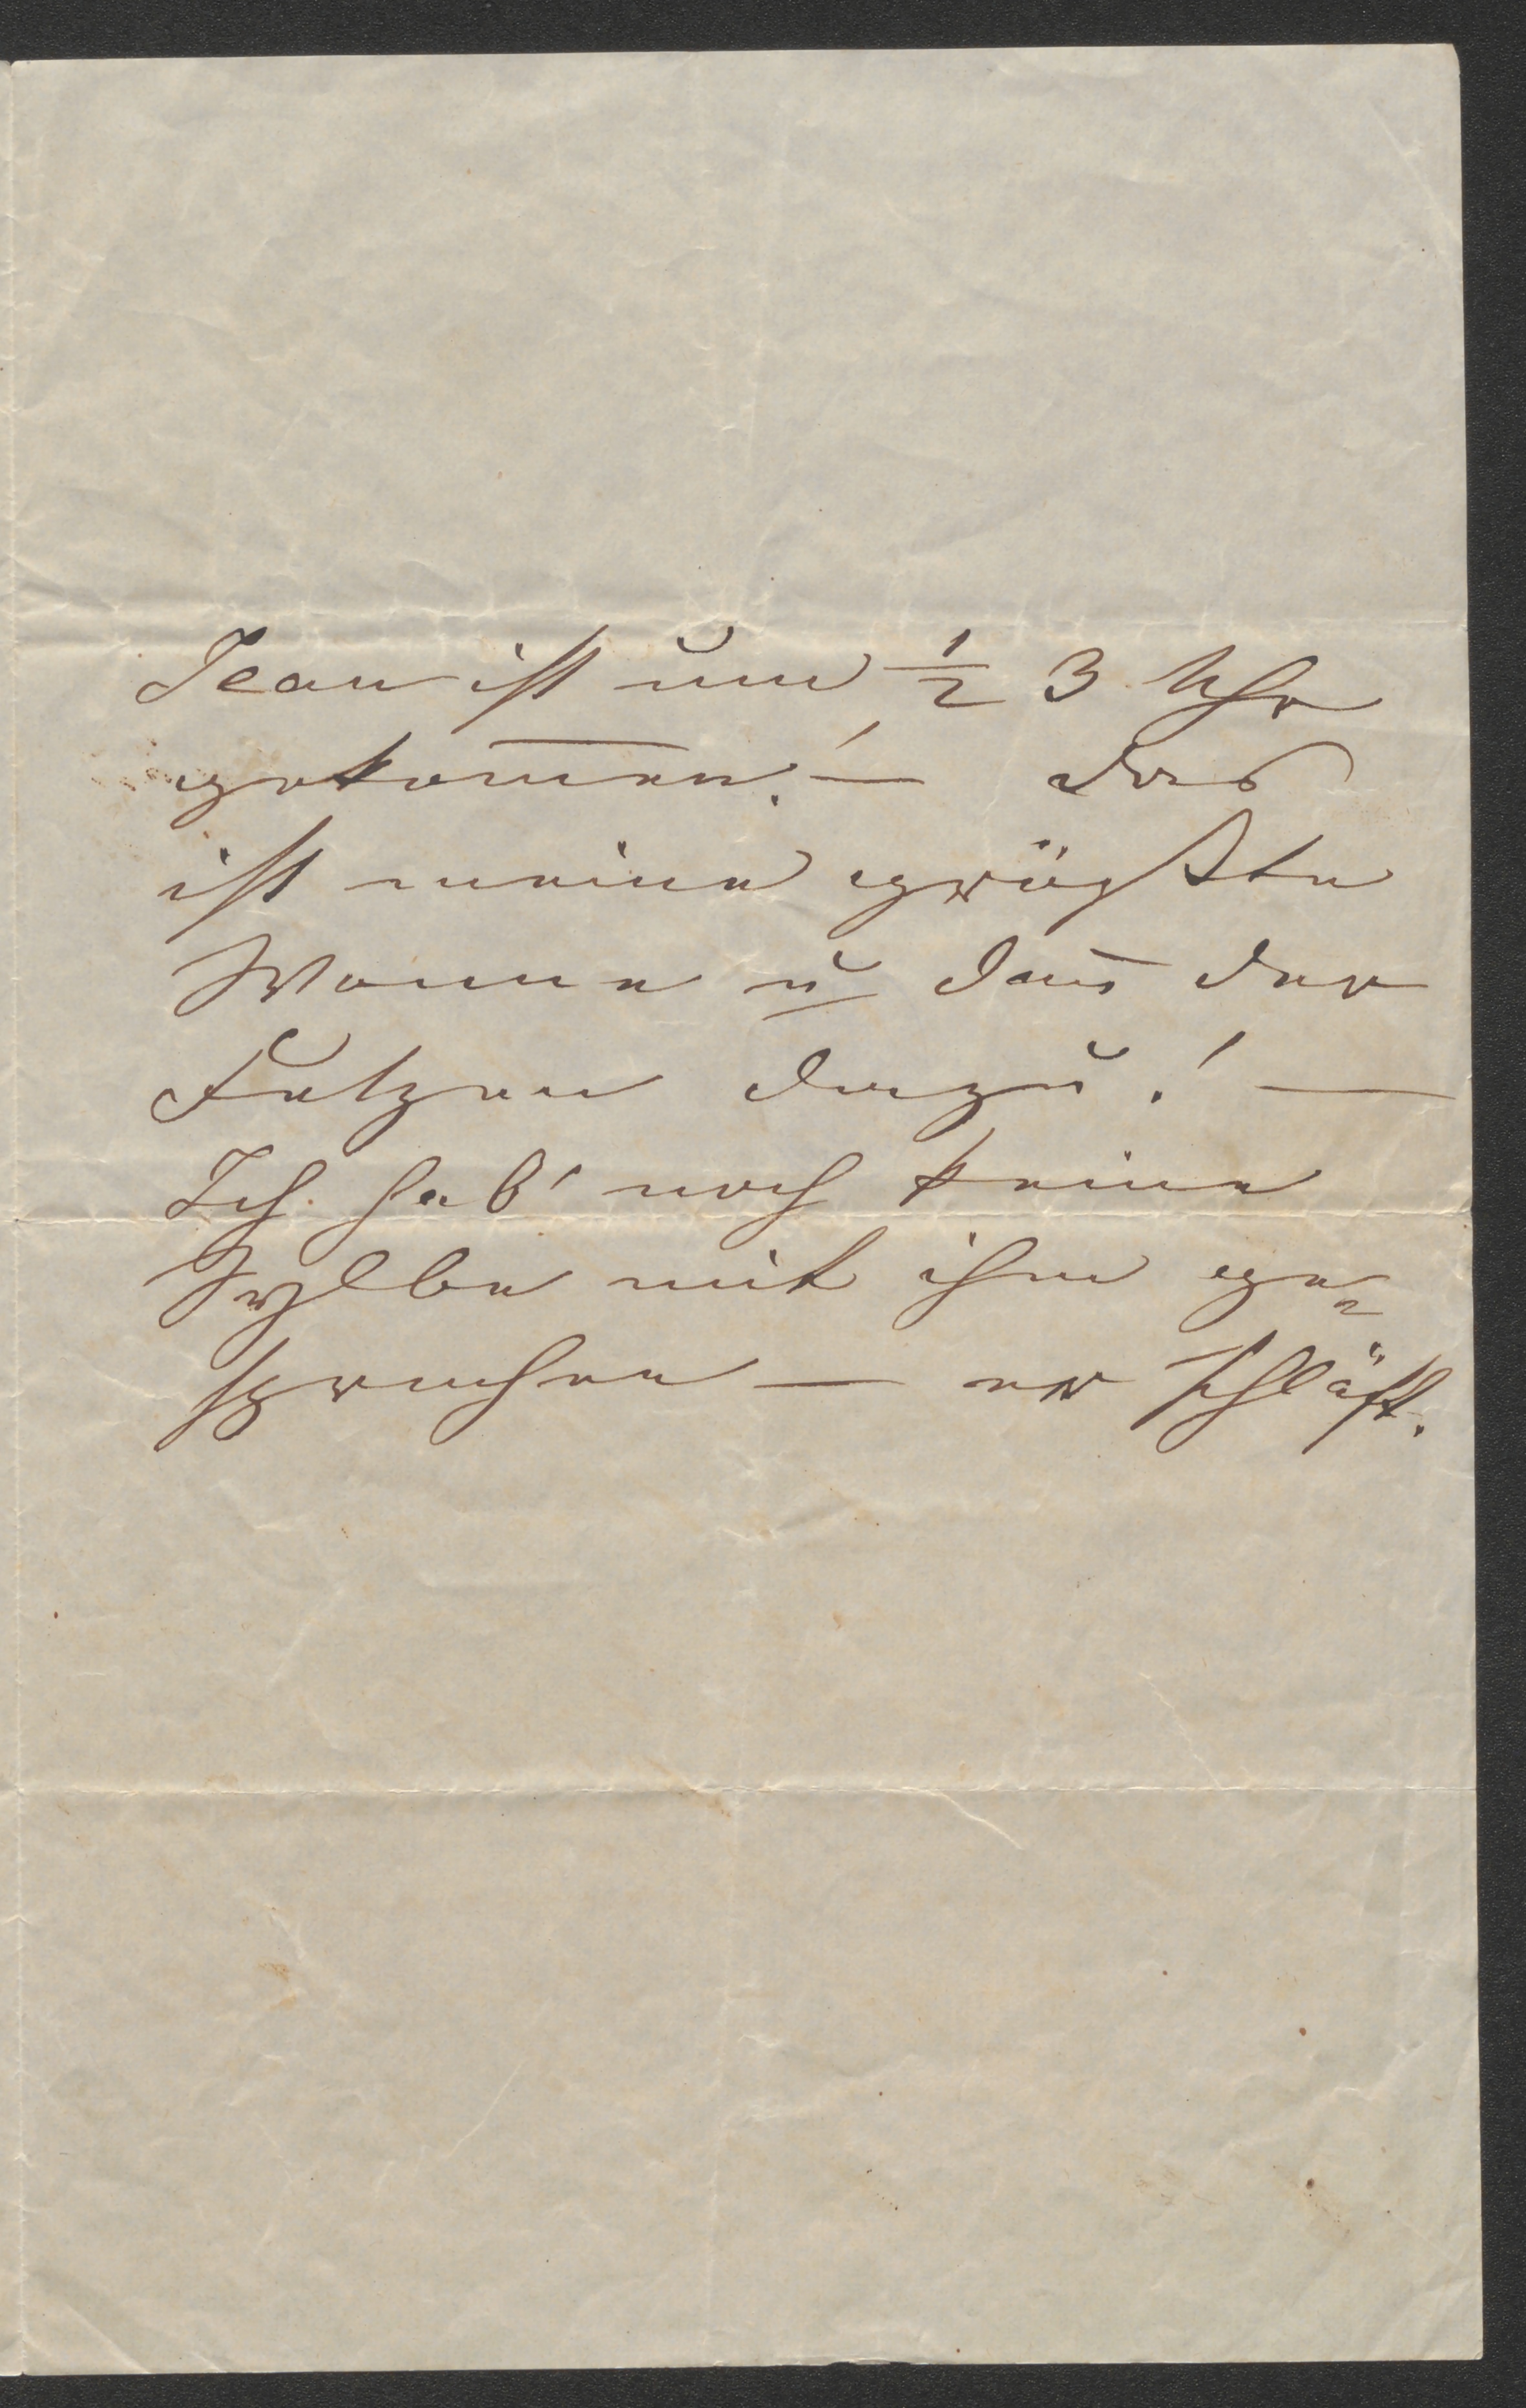 Jean ist um ½ 3 Uhr
gekom̄en! — das
ist meine größte
Wonne u dan̄ der
Fetzen dazu! —
Ich hab' noch keine
Sylbe mit ihm ge=
sprochen — er schläft.